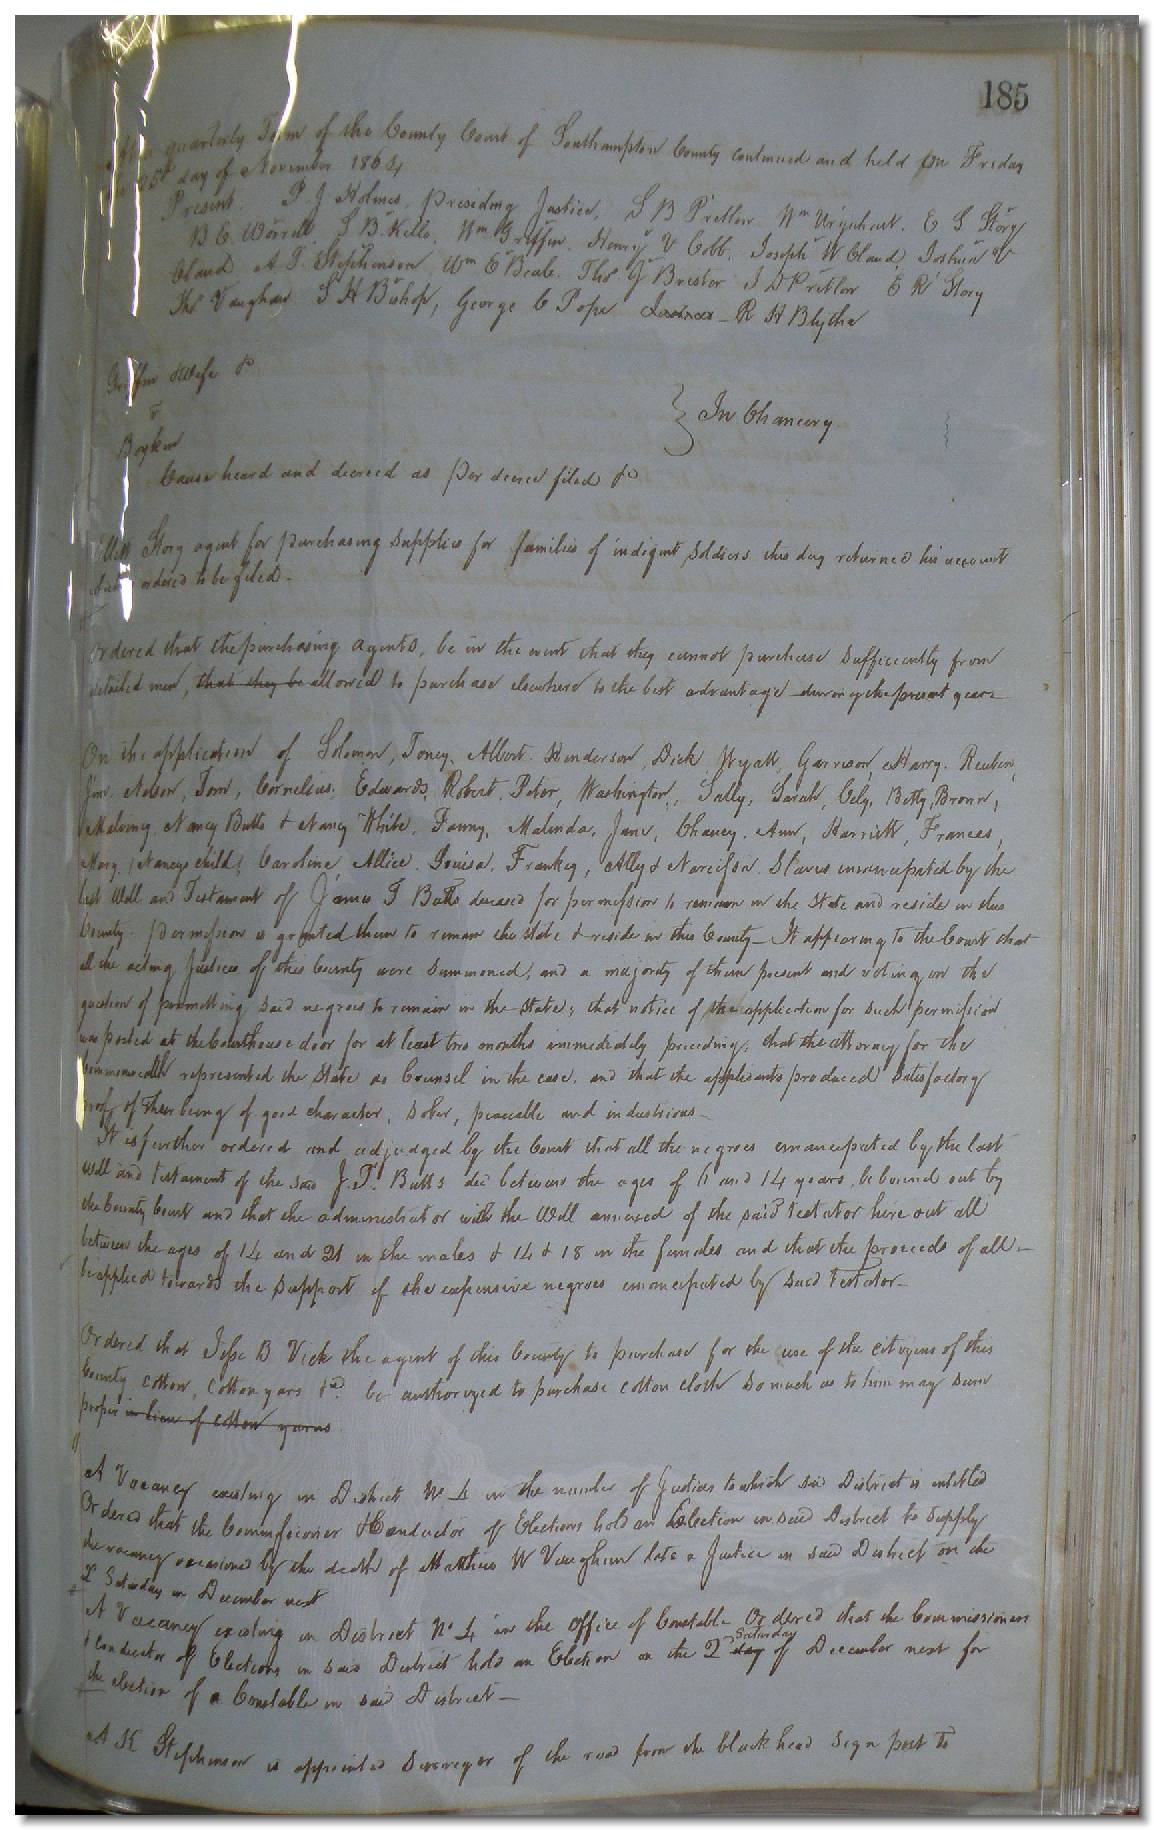 185
At a quarterly Term of the County Court of Southampton County continued and held on Friday
the 25th day of November 1864
Present. P. J Holmes, presiding Justice, S B Pretlow Wm Urquhart. E S Story
B C. Worrell, S B. Kello, Wm Griffin, Henry V Cobb, Joseph W Claud, Joshua V
Claud, A. T. Stephenson, Wm E Beale. Thos. G Brister J D Pretlow E R Story
Thos Vaughan S H Bishop, George C Pope R H Blythe
Griffin & wife &c
v
Boykin
} In Chancery
Cause heard and decreed as per decree filed &c
Story agent for purchasing supplies for families of indigent soldiers this day returned his account
ordered to be filed.
Ordered that the purchasing agents, be in the event that they cannot purchase sufficiently from
detailed men, that they be allowed to purchase elsewhere to the best advantage during the present year
On the application of Solomon, Toney, Albert. Henderson, Dick Wyatt, Garrison, Harry. Reuben,
Jim. Nelson, Tom, Cornelius, Edwards, Robert. Peter, Washington, Sally, Sarah, Cely, Betty, Brown,
Malviny, Nancy Butts & Nancy White, Fanny, Malinda, Jane, Chaney. Ann, Harriett, Frances,
Mary, (Nancys child) Caroline, Allice. Louisa. Frankey, Ally & Narcissa. Slaves emancipated by the
last Will and Testament of James T Butts deceased for permission to remain in the State and reside in this
County. permission is granted them to remain the state & reside in this County — It appearing to the Court that
all the acting Justices of this County were summoned, and a majority of them present and voting on the
question of permitting said negroes to remain in the State; that notice of the application for such permission
was posted at the Courthouse door for at least two months immediately preceding, that the attorney for the
Commonwealth represented the State as Counsel in the case, and that the applicants produced satisfactory
proof of their being of good character, sober, peaceable and industrious —
It is further ordered and adjudged by the Court that all the negroes emancipated by the last
will and testament of the said J. T. Butts decd between the ages of and 14 years, be bound out by
the County Court and that the administrator with the Will annexed of the said testator hire out all
between the ages of 14 and 21 in the males & 14 & 18 in the females and that the proceeds of all —
be applied towards the support of the expensive negroes emancipated by said testator —
Ordered that Jesse B Vick the agent of this County to purchase for the use of the citizens of this
County cotton, cotton yarns &c. be authorized to purchase cotton cloth so much as to him may seem
proper in lieu of cotton yarns
A Vacancy existing in District No 4 in the number of Justices to which said District is entitled
Ordered that the Commissioner & Conductor of Elections hold an Election in said District to supply
the vacancy occasioned by the death of Matthew W Vaughan late a Justice in said District on the
2d Saturday in December next
A Vacancy existing in District No 4 in the office of Constable Ordered that the Commissioners
Saturday
& conductor of Elections in said District hold an Election on the 2d day of December next for
the election of a Constable in said District —
A K Stephenson is appointed Surveyor of the road from the black head sign post to